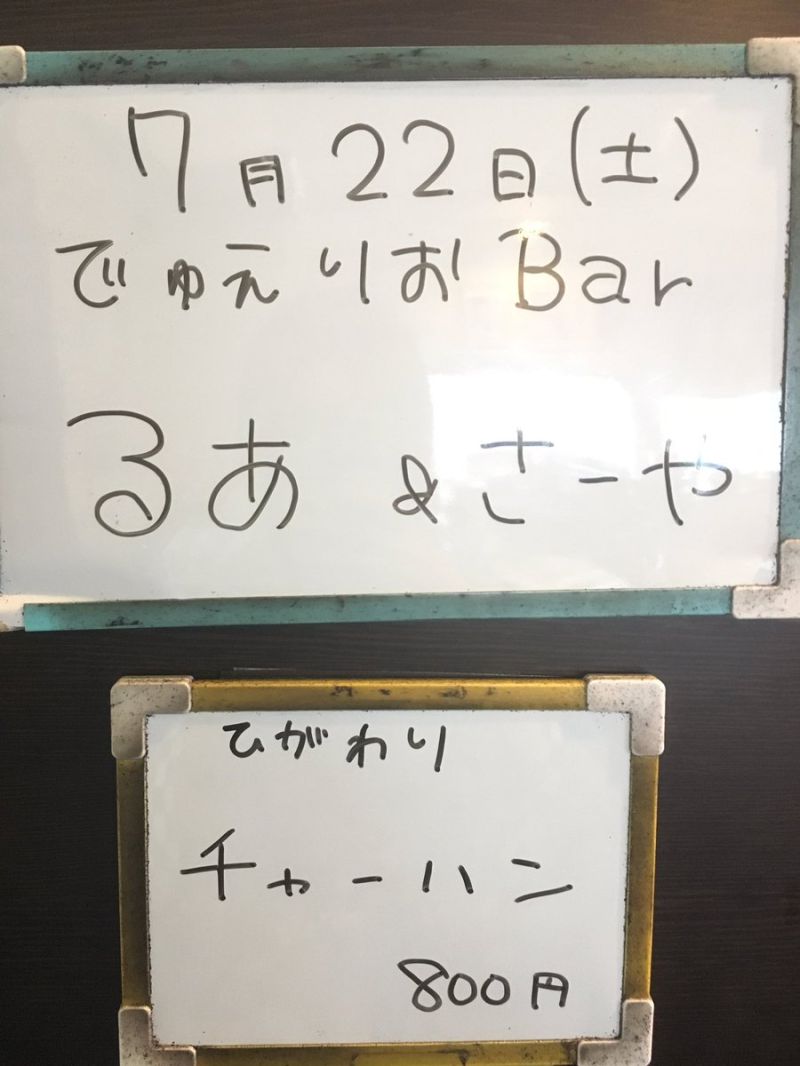 7月22日(土)
でゅえりおBar
るあ &さーや
ひがわり
チャーハン
800円